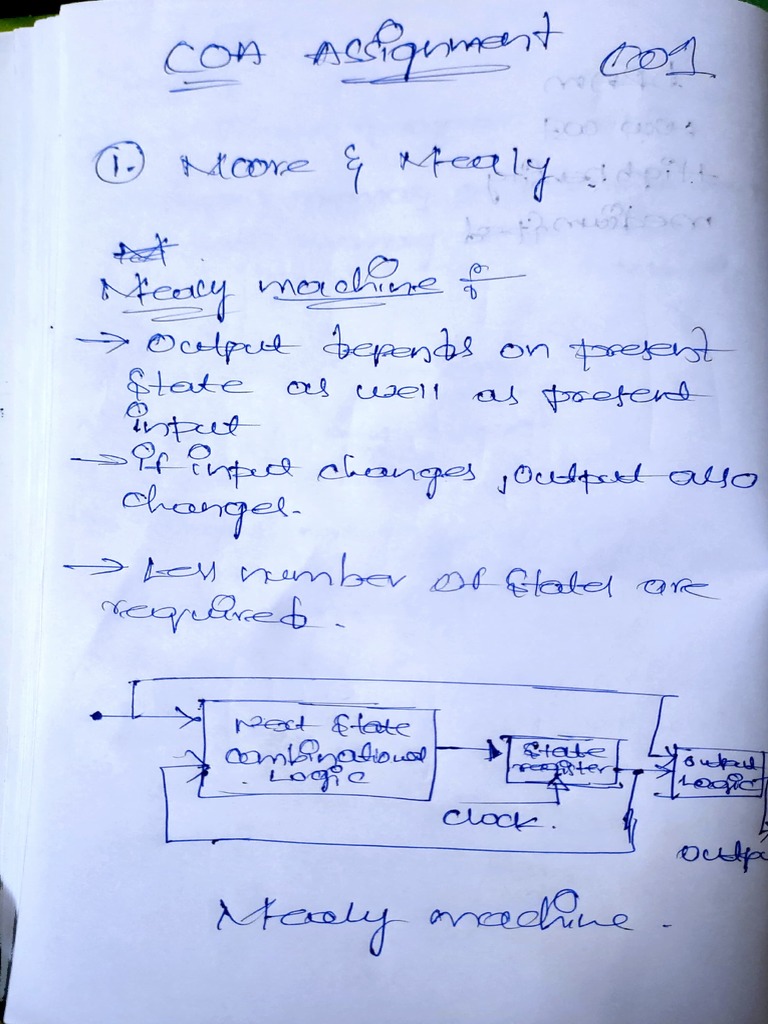 COA Assignment CO1
1. Moore & Mealy
Mealy machine :-
→ Output depends on present
state as well as present
input
→ if input changes, output also
changes.
→ Less number of states are
required.
Next State
combinational
Logic
State
register
output
Logic
clock.
outp
Mealy machine.